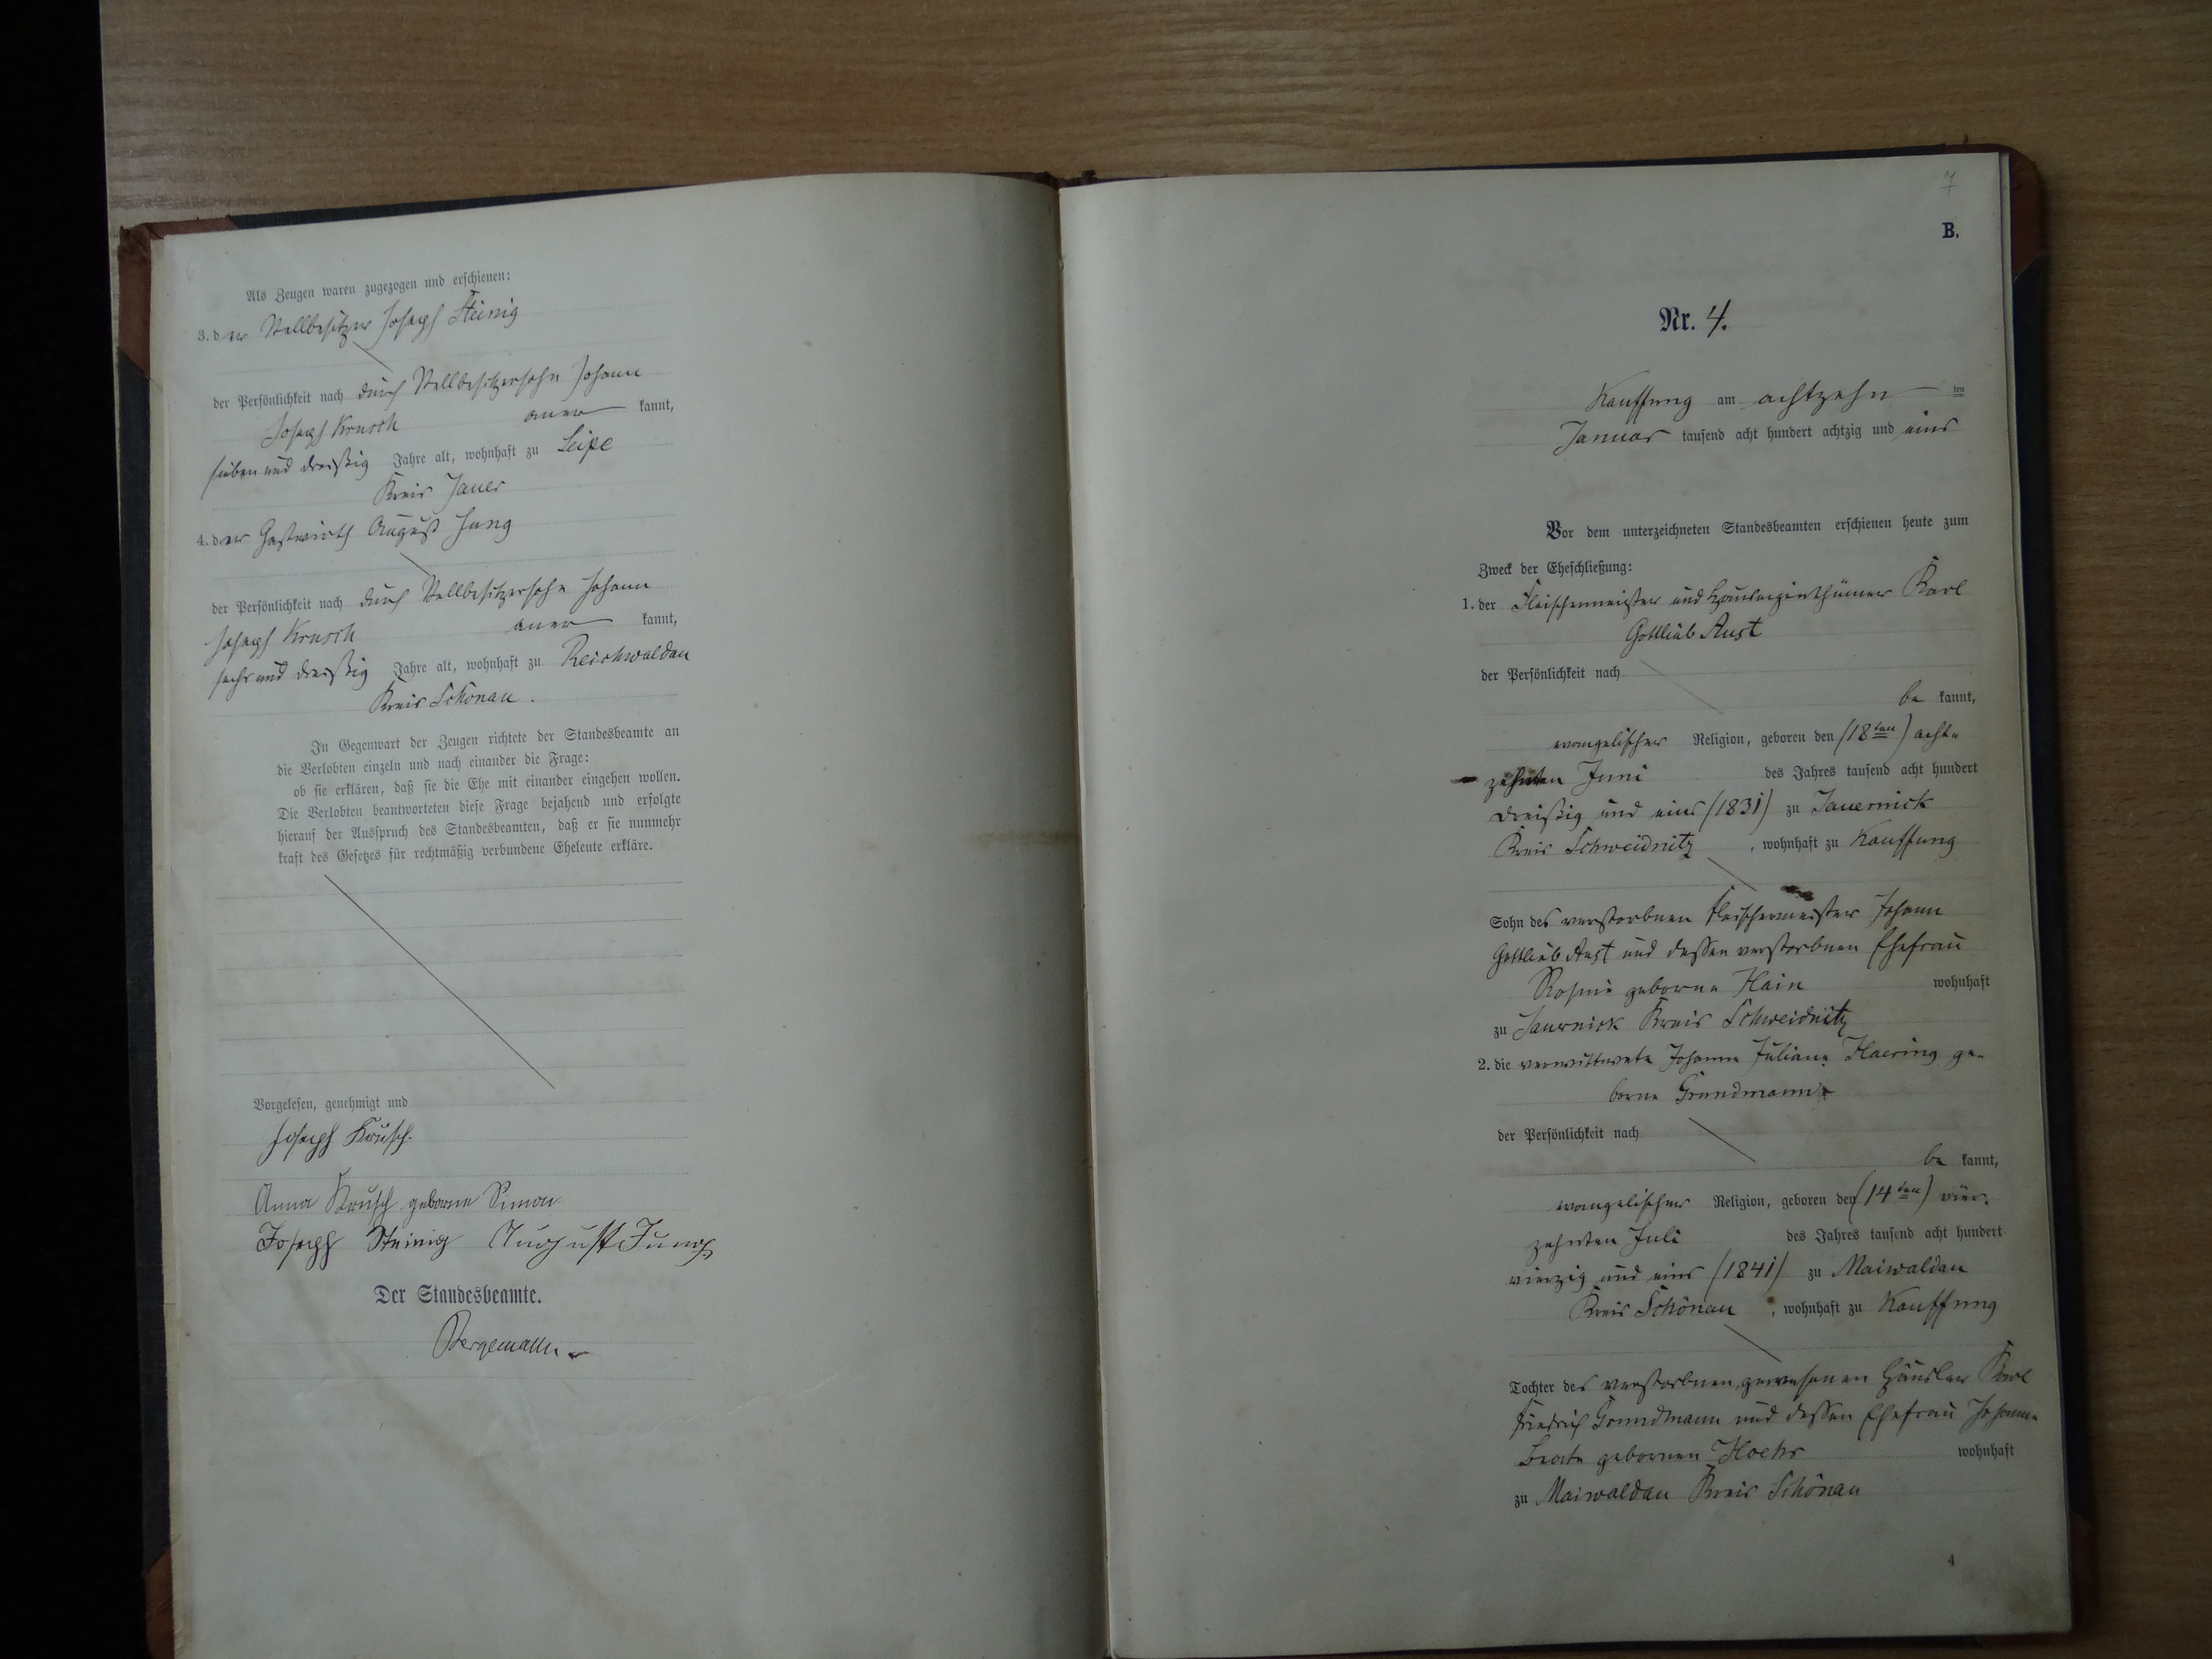 Als Zeugen waren zugezogen und erschienen:
3. der Stellbesitzer Joseph Steinig
der Persönlichkeit nach durch Stellbesitzersohn Johann
Joseph Krusch aner kannt,
sieben und dreißig Jahre alt, wohnhaft zu Leipe
Kreis Jauer
4. der Gastwirth August Jung
der Persönlichkeit nach durch Stellbesitzersohn Johann
Joseph Krusch aner kannt,
sechs und dreißig Jahre alt, wohnhaft zu Reichwaldau
Kreis Schönau.
In Gegenwart der Zeugen richtete der Standesbeamte an
die Verlobten einzeln und nach einander die Frage:
ob sie erklären, daß sie die Ehe mit einander eingehen wollen.
Die Verlobten beantworteten diese Frage bejahend und erfolgte
hierauf der Ausspruch des Standesbeamten, daß er sie nunmehr
kraft des Gesetzes für rechtmäßig verbundene Eheleute erkläre.
Vorgelesen, genehmigt und
Joseph Krusch.
Anna Krusch geborne Simon
Joseph Steinig August Jung
Der Standesbeamte.
Bergemann
7
B.
Nr. 4.
Kauffung am achtzehn ten
Januar tausend acht hundert achtzig und eins
Vor dem unterzeichneten Standesbeamten erschienen heute zum
Zweck der Eheschließung:
1. der Fleischermeister und Hauseigenthümer Karl
Gottlieb Aust
der Persönlichkeit nach
be kannt,
evangelischer Religion, geboren den (18ten) acht-
zehnten Juni des Jahres tausend acht hundert
dreißig und eins (1831) zu Jauernick
Kreis Schweidnitz, wohnhaft zu Kauffung
Sohn des verstorbnen Fleischermeister Johann
Gottlieb Aust und dessen verstorbnen Ehefrau
Rosine geborne Hain wohnhaft
zu Jauernick Kreis Schweidnitz
2. die verwittwete Johanne Juliane Haering ge-
borne Grundmann
der Persönlichkeit nach
be kannt,
evangelischer Religion, geboren den (14ten) vier-
zehnten Juli des Jahres tausend acht hundert
vierzig und eins (1841) zu Maiwaldau
Kreis Schönau, wohnhaft zu Kauffung
Tochter des verstorbnen gewesenen Häusler Karl
Friedrich Grundmann und dessen Ehefrau Johanne
Beate gebornen wohnhaft
zu Maiwaldau Kreis Schönau
4